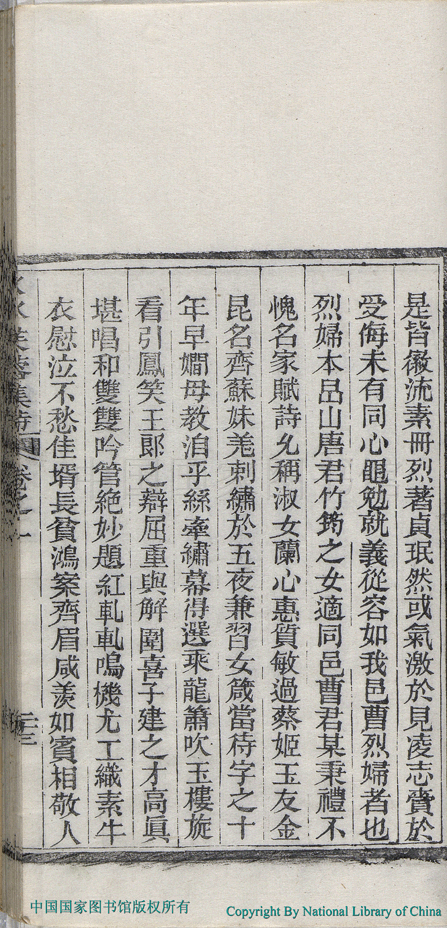 是皆徽流素冊烈著貞珉然或氣激於見凌志賷於
受侮未有同心黽勉就義從容如我邑曹烈婦者也
烈婦本邑山唐君竹筠之女適同邑曹君某秉禮不
愧名家賦詩允稱淑女蘭心惠質敏過蔡姬玉友金
昆名齊蘇妹羗刺繡於五夜兼習女箴當待字之十
年早嫺母教洎乎絲牽繡幕得選乘龍簫吹玉樓旋
看引鳳笑王郎之辯屈重與解圍喜子建之才高眞
堪唱和雙雙吟管絶妙題紅軋軋鳴機尤工織素牛
衣慰泣不愁佳壻長貧鴻案齊眉咸羨如賓相敬人
水芙蓉集
卷之一
二三
中国国家图书馆版权所有
Copyright By National Library of China